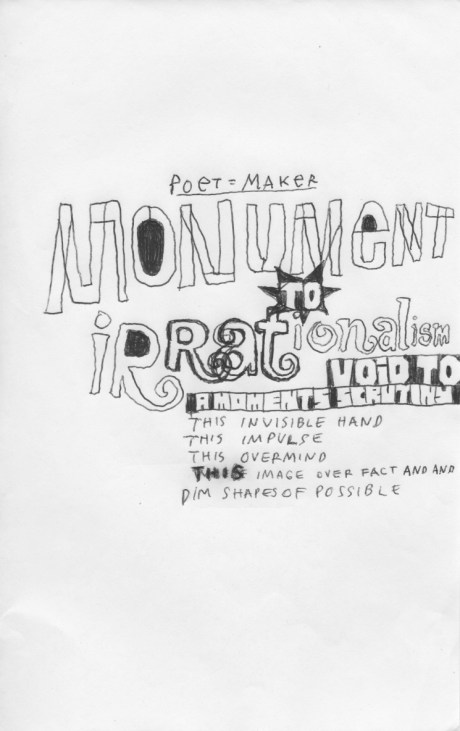 POET = MAKER
MONUMeNT
TO
iRRationalism
VOiD TO
A MOMENTS SCRUTINY
THIS INVISIBLE HAND
THIS IMPULSE
THIS OVERMIND
THIS IMAGE OVER FACT AND AND
DIM SHAPES OF POSSIBLE